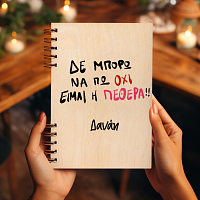 ΔΕ ΜΠΟΡΩ
ΝΑ ΠΩ ΟΧΙ
ΕΙΜΑΙ Η ΠΕΘΕΡΑ!!
Δανάη